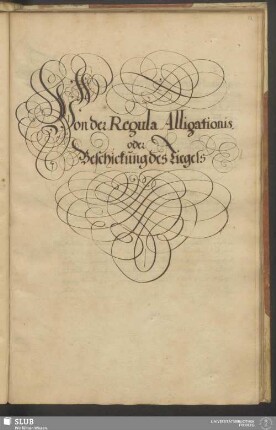 Von der Regula Alligationis
oder
Beschickung des Tiegels
SLUB
Wir führen Wissen.
UNIVERSITÄTSBIBLIOTHEK
FREIBERG